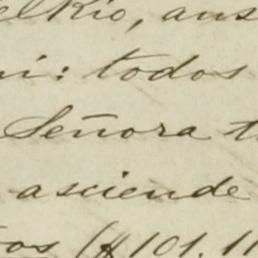 elRio, aus
ni: todos
Señora t
asciende
os ($101.11